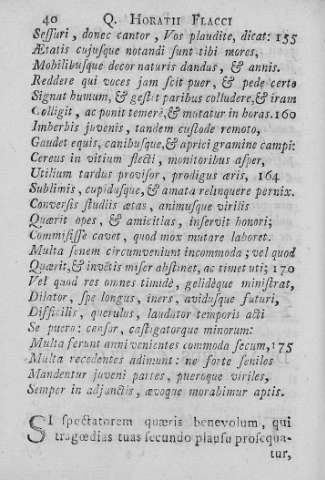 40 Q. HORATII FLACCI
Sessuri, donec cantor, Vos plaudite, dicat: 155
Ætatis cujusque notandi sunt tibi mores,
Mobilibusque decor naturis dandus, & annis.
Reddere qui voces jam scit puer, & pede certo
Signat humum, & gestit paribus colludere, & iram
Colligit, ac ponit temerè, & mutatur in horas. 160
Imberbis juvenis, tandem custode remoto,
Gaudet equis, canibusque, & aprici gramine campi:
Cereus in vitium flecti, monitoribus asper,
Utilium tardus provisor, prodigus æris, 164
Sublimis, cupidusque, & amata relinquere pernix.
Conversis studiis ætas, animusque virilis
Quærit opes, & amicitias, inservit honori;
Commisisse cavet, quod mox mutare laboret.
Multa senem circumveniunt incommoda; vel quod
Quærit, & inventis miser abstinet, ac timet uti; 170
Vel quod res omnes timidè, gelidèque ministrat,
Dilator, spe longus, iners, avidusque futuri,
Difficilis, querulus, laudator temporis acti
Se puero: censor, castigatorque minorum:
Multa ferunt anni venientes commoda secum, 175
Multa recedentes adimunt: ne forte seniles
Mandentur juveni partes, pueroque viriles,
Semper in adjunctis, ævoque morabimur aptis.
SI spectatorem quæris benevolum, qui
tragœdias tuas secundo plausu prosequa-
tur,